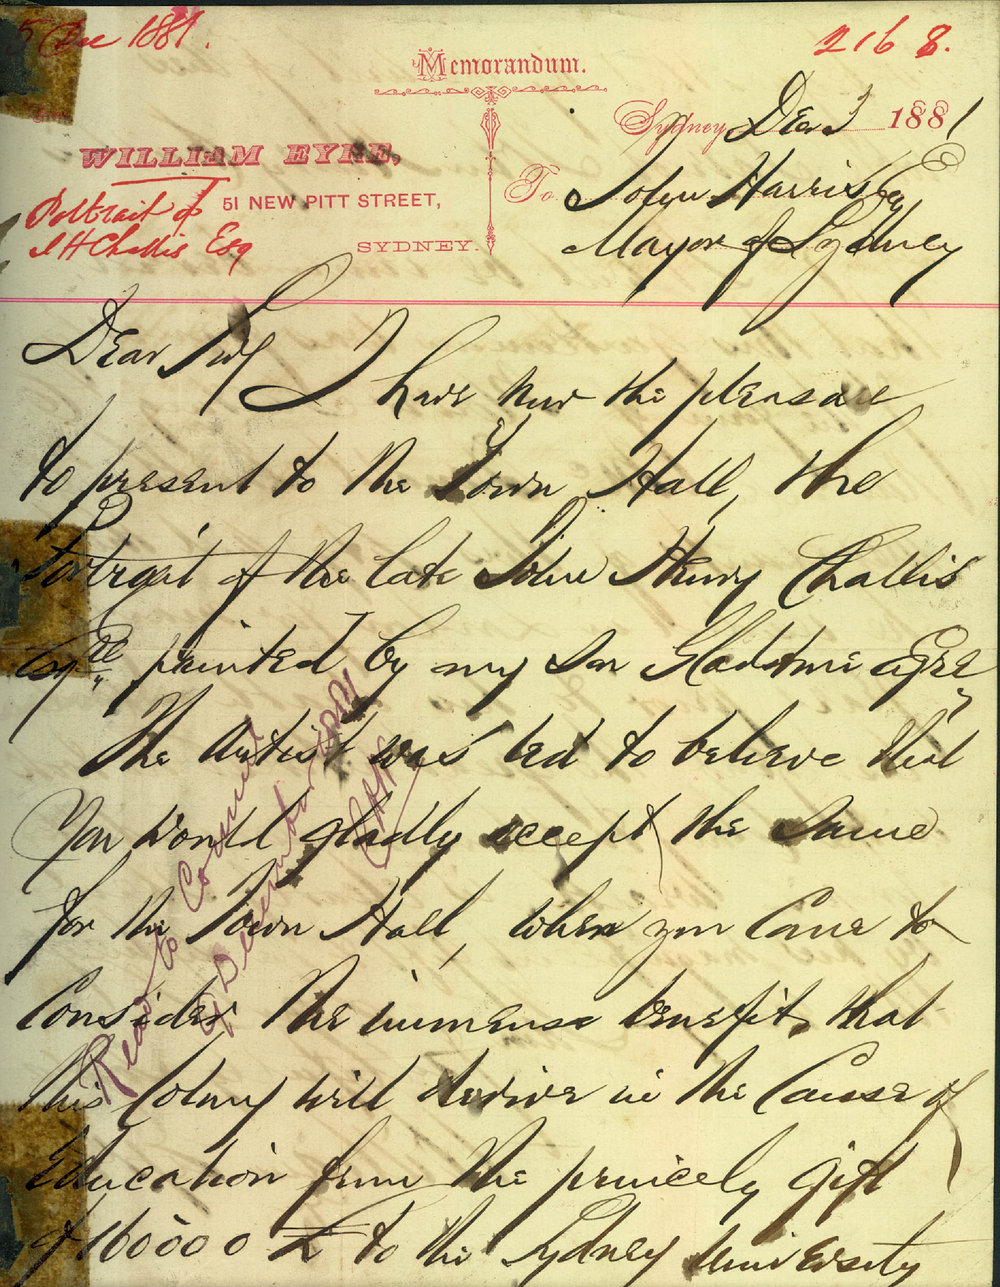 5 Dec 1881.
2168.
Memorandum.
Sydney Decr 3 1881
WILLIAM EYRE,
51 NEW PITT STREET,
SYDNEY.
Portrait of
J H Challis Esq
To John Harris Esq
Mayor of Sydney
Dear Sir, I have now the pleasure
to present to the Town Hall, the
Portrait of the late John Henry Challis
Esqre painted by my son Gladstone Eyre,
The Artist was led to believe that
You would gladly accept the same
for the Town Hall, when you came to
Consider the immense benefit, that
this Colony will derive in the Cause of
Education from the princely gift
of 160000 £ to the Sydney University
Read to Council
December 1881